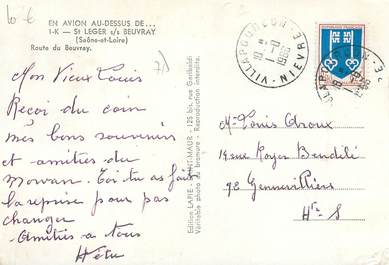 10 €
EN AVION AU-DESSUS DE...
I-K — St LEGER s/s BEUVRAY
(Saône-et-Loire)
Route du Beuvray.
Mon Vieux Louis
Reçoi du coin
mes bons souvenirs
et amitiés du
Morvan. Toi tu as fait
la reprise pour pas
changer
Amitiés a tous
Edition LAPIE - SAINT-MAUR - 125 bis, rue Garibaldi
Véritable photo au bromure - Reproduction interdite.
VILLAPOURÇON
NIEVRE
1966
Mr Louis
14 rue Roger
92 Gennevilliers
Hte S